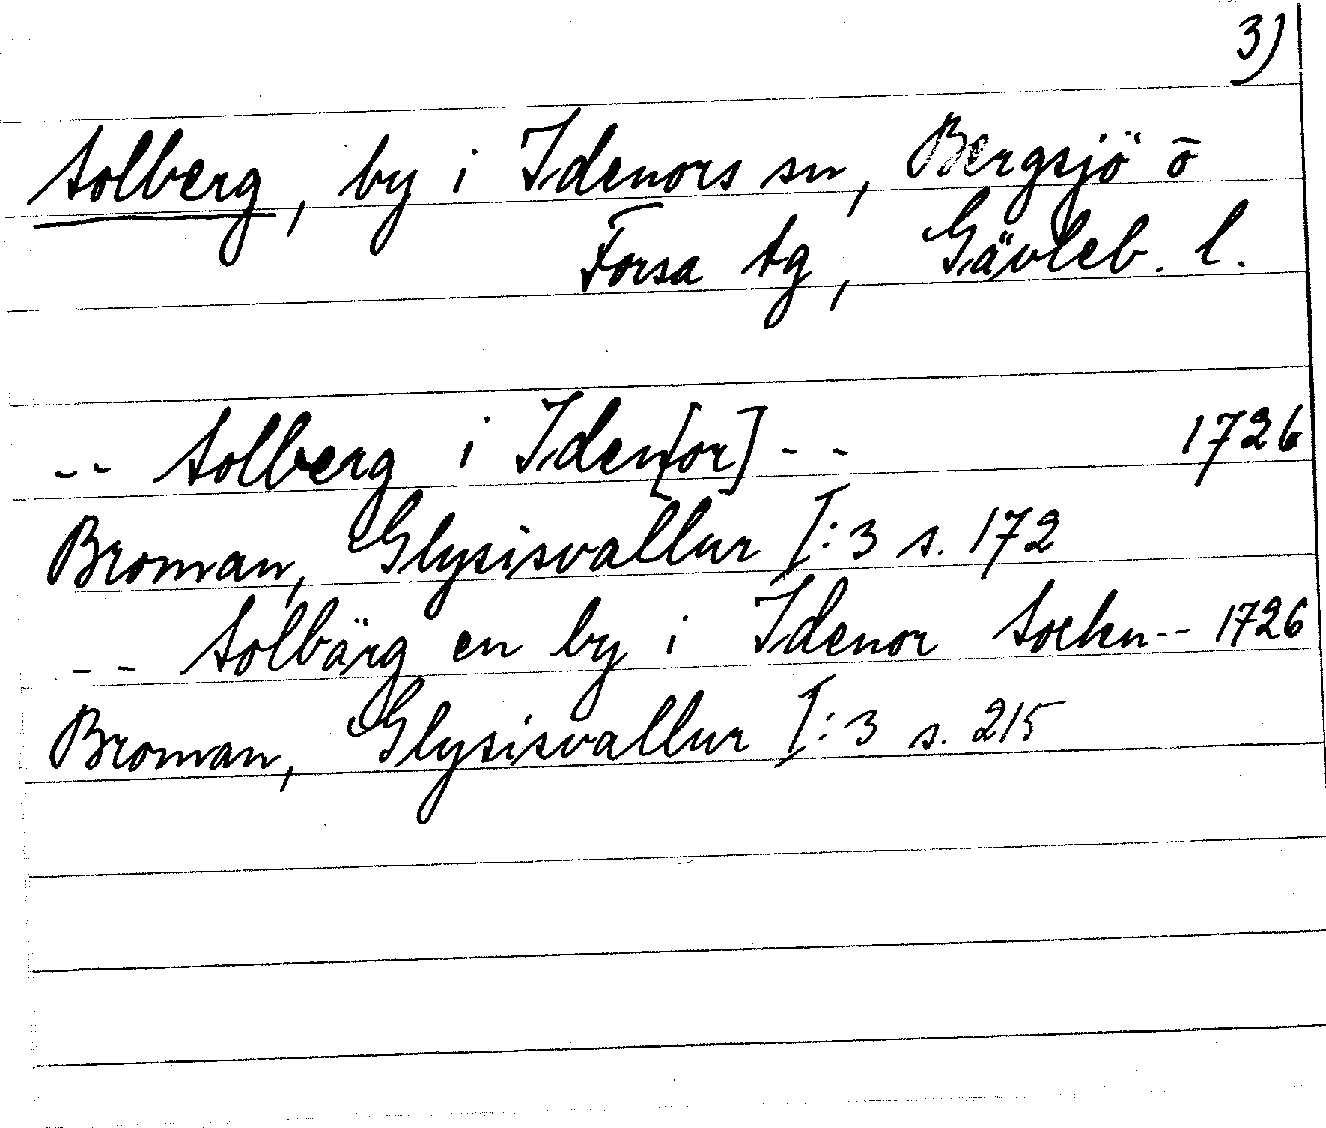 3)
Solberg, by i Idenors sn, Bergsjö o̅
Forsa tg, Gävleb. l.
-- Solberg i Iden[or] -- 1726
Broman, Glysisvallur I:3 s. 172
-- Solbärg en by i Idenor Sockn -- 1726
Broman, Glysisvallur I:3 s. 215